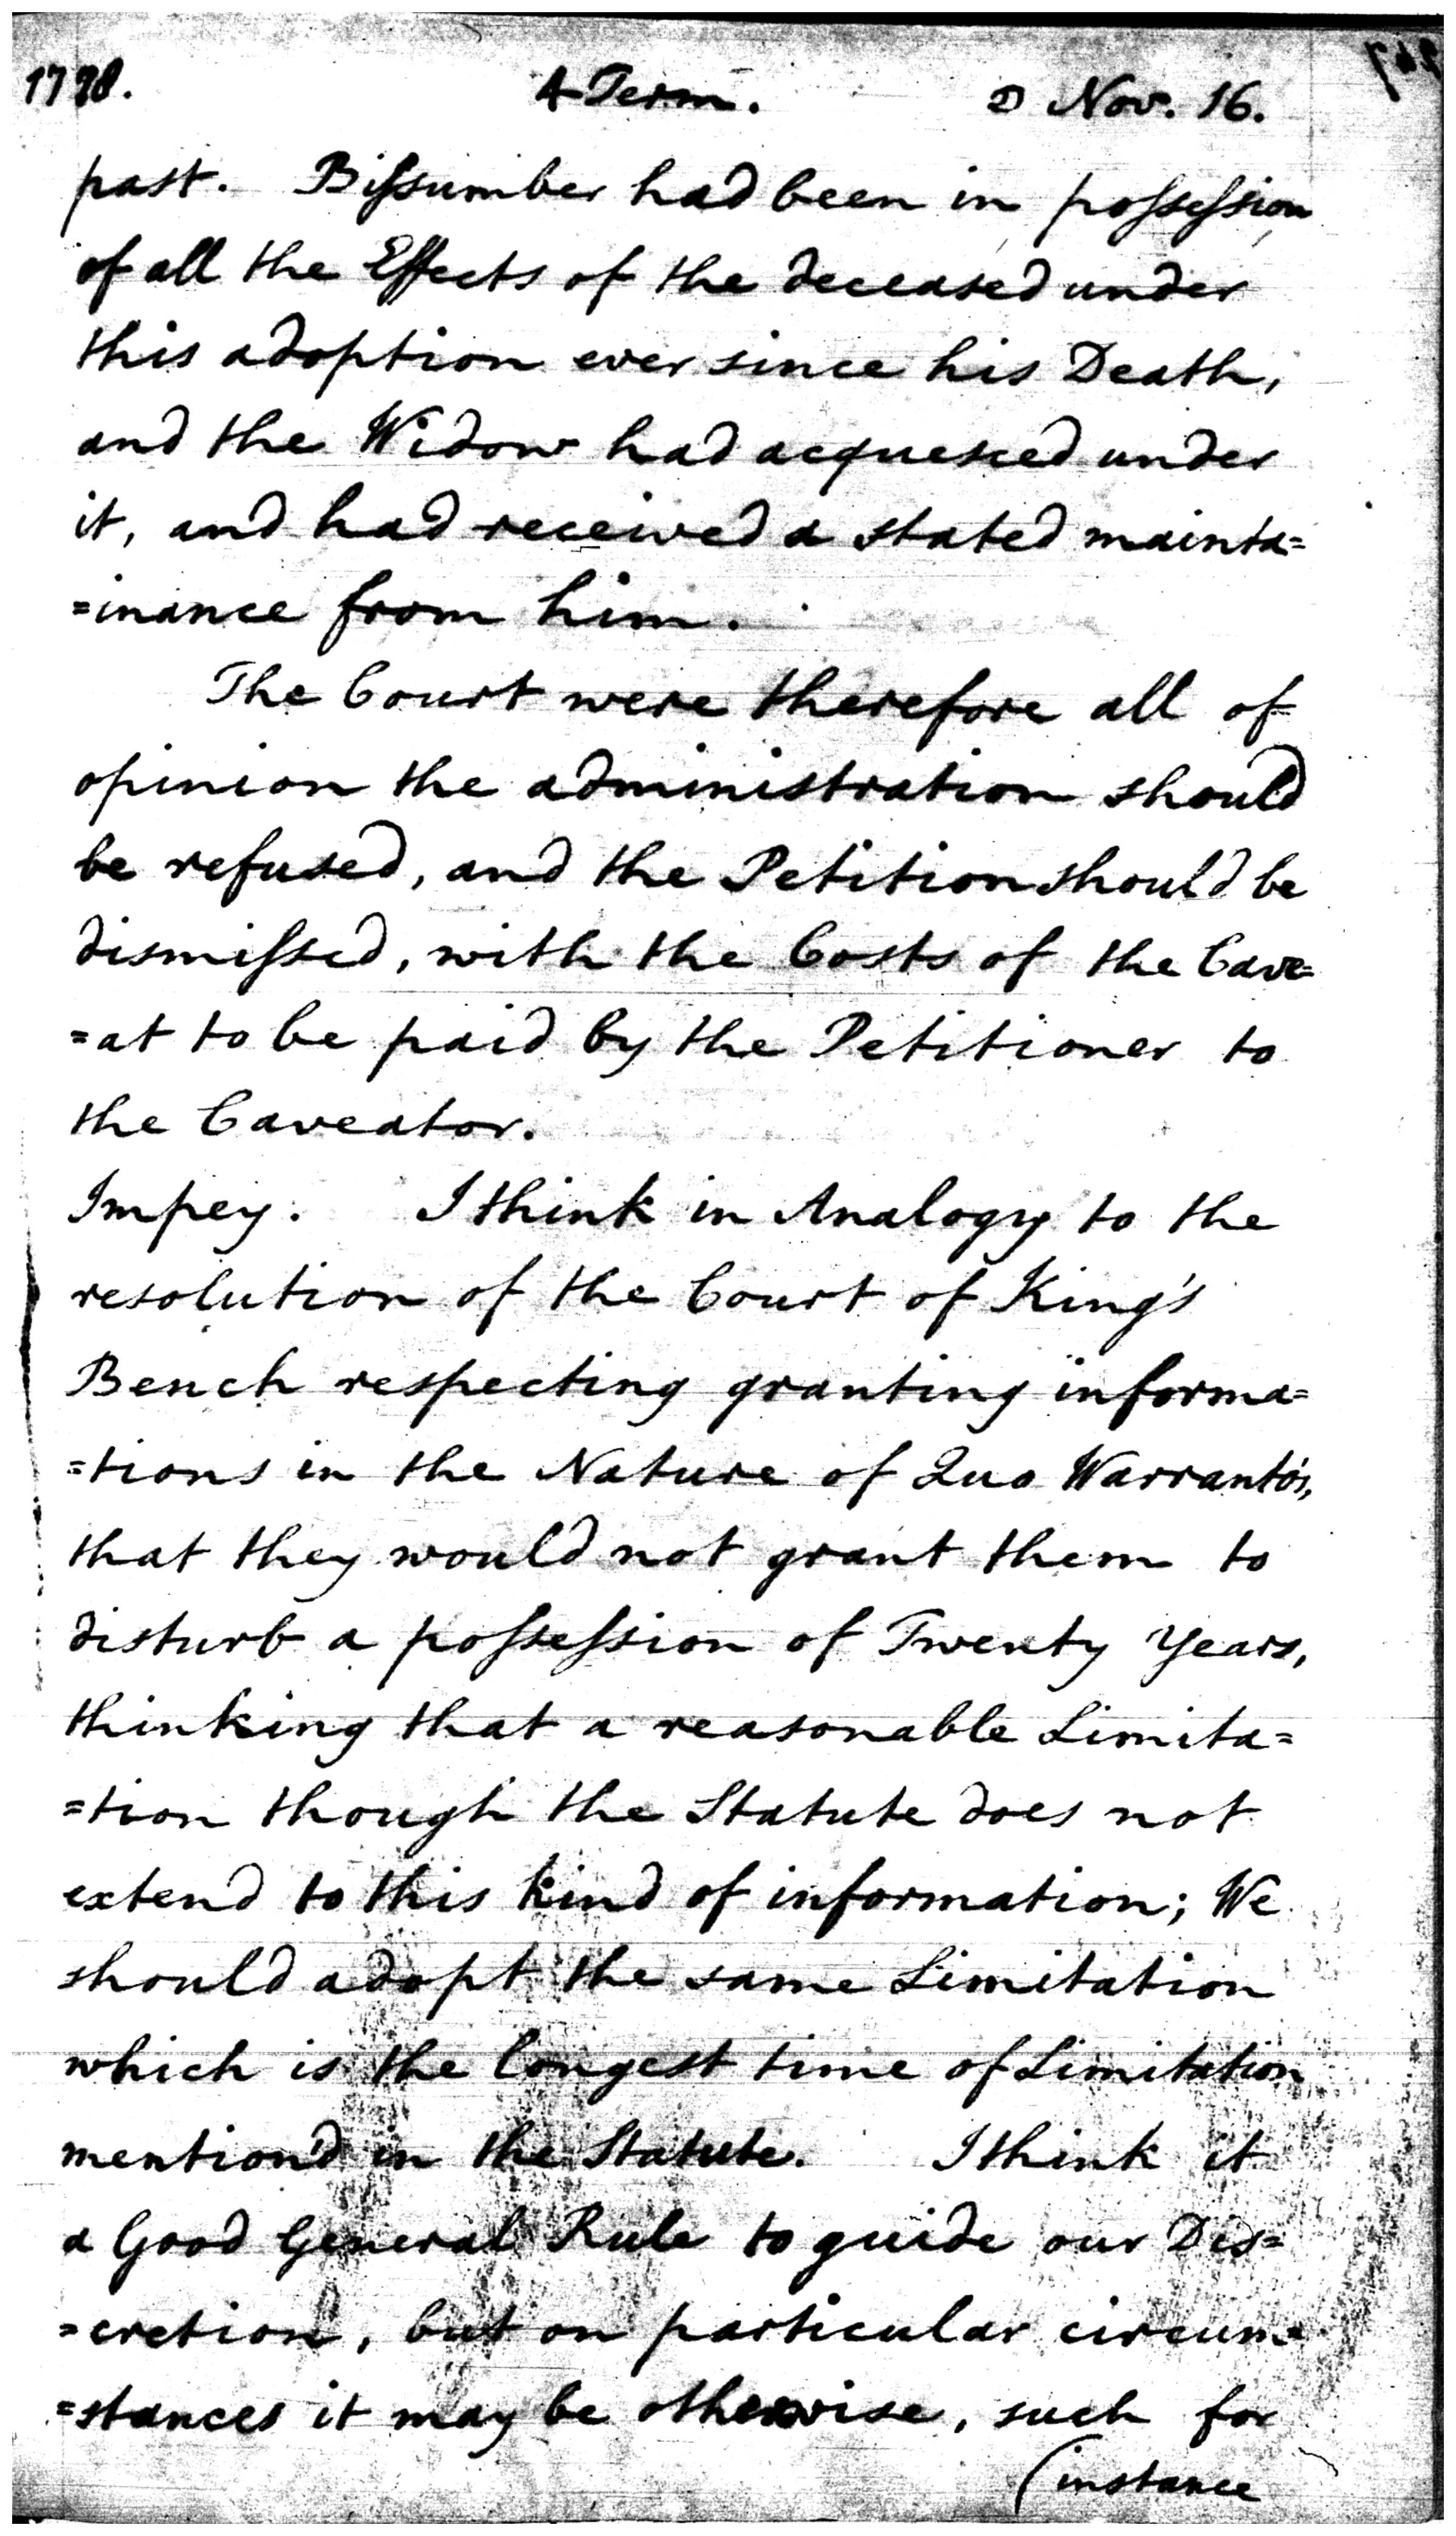 1778. 4 Term. ☽ Nov. 16.
past. Bissumber had been in possession
of all the Effects of the deceased under
this adoption ever since his Death,
and the Widow had acquesced under
it, and had received a stated mainta=
=inance from him.
The Court were therefore all of
opinion the administration should
be refused, and the Petition should be
dismissed, with the Costs of the Cave=
=at to be paid by the Petitioner to
the Caveator.
Impey. I think in Analogy to the
resolution of the Court of King's
Bench respecting granting informa=
=tions in the Nature of Quo Warranto's,
that they would not grant them to
disturb a possession of Twenty Years,
thinking that a reasonable Limita=
=tion though the Statute does not
extend to this kind of information; We
should adopt the same Limitation
which is the longest time of Limitation
mention'd in the Statute. I think it
a Good General Rule to guide our Dis=
=cretion, but on particular circum=
=stances it may be otherwise, such for
(instance